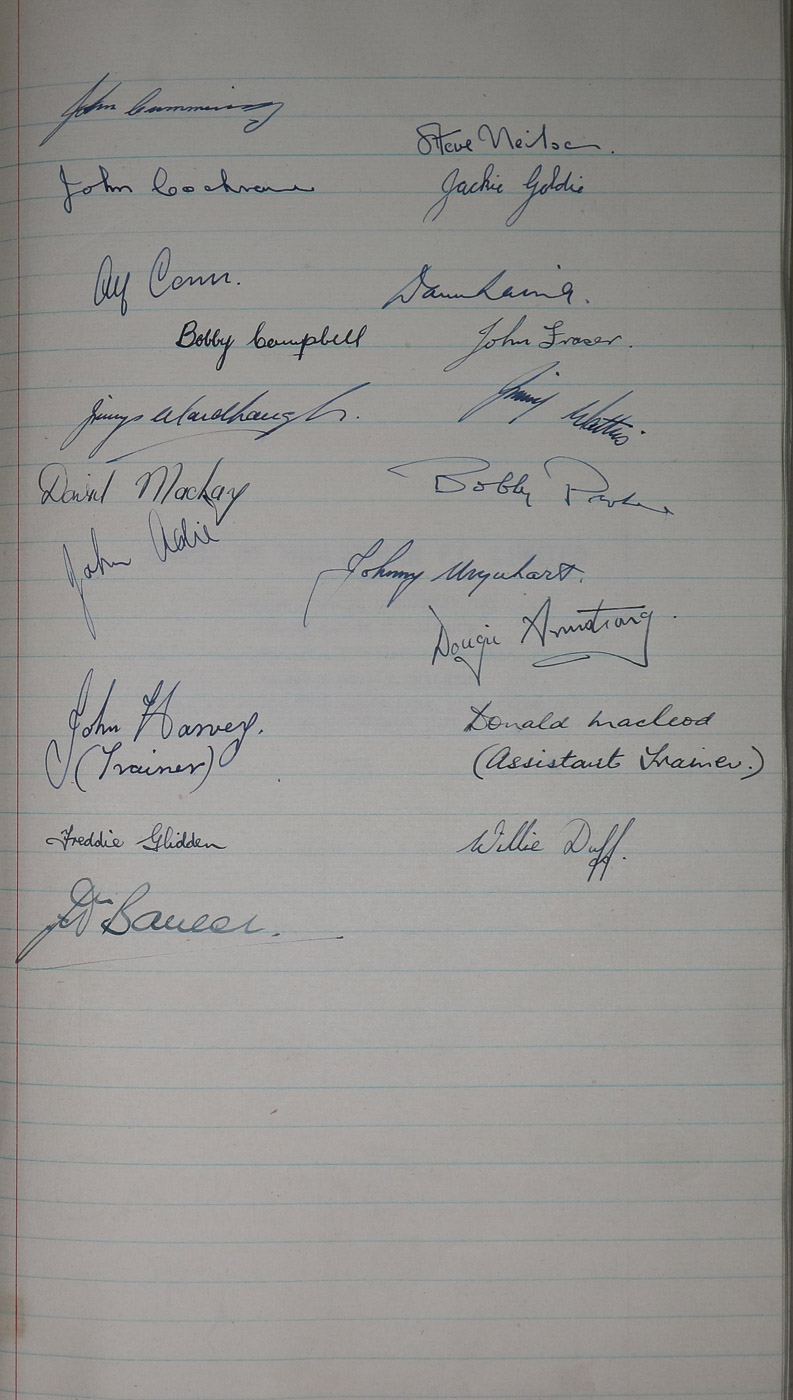 John Cummings
Steve Neilson.
John Cochrane
Jackie Goldie
Alf Conn.
Dave Laing.
Bobby Campbell
John Fraser.
Jimmy Wardhaugh.
Jimmy Wattie.
David Mackay
Bobby Parker
John Adie
Johnny Urquhart.
Dougie Armstrong.
John Harvey.
(Trainer)
Donald Macleod
(Assistant Trainer.)
Freddie Glidden
Willie Duff.
Bauld.